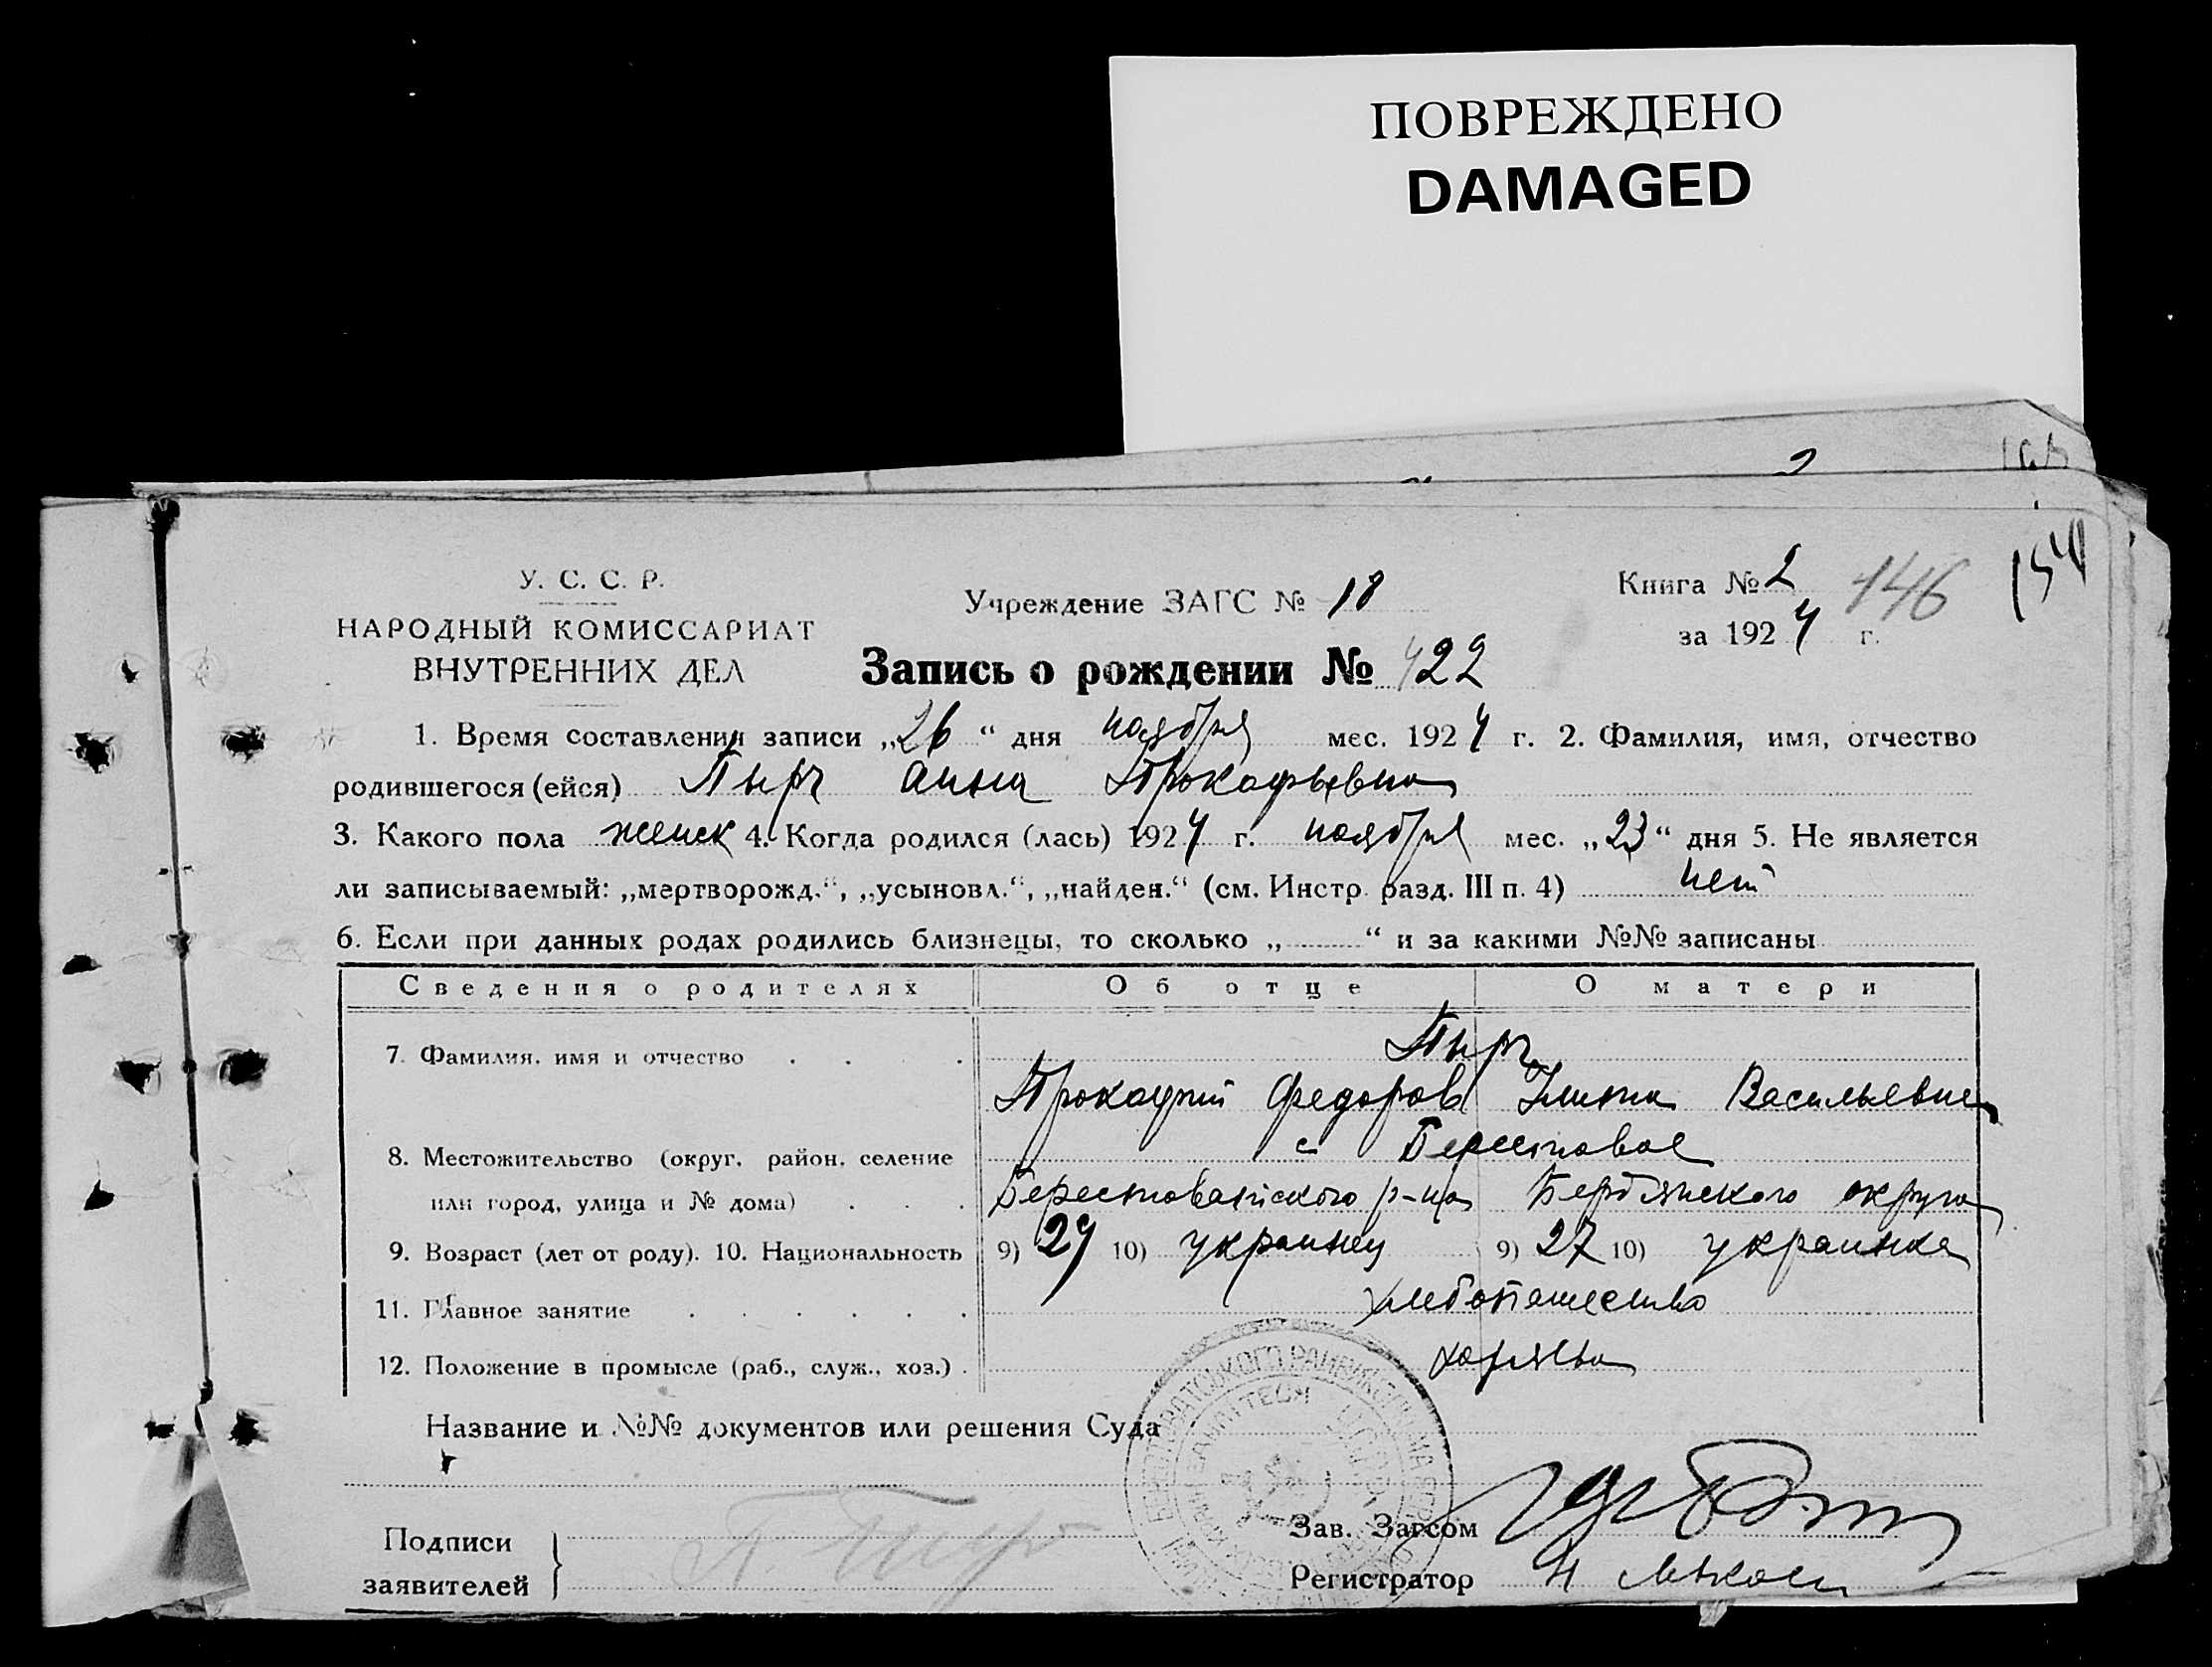 ПОВРЕЖДЕНО
DAMAGED
У. С. С. Р.
НАРОДНЫЙ КОМИССАРИАТ
ВНУТРЕННИХ ДЕЛ
Учреждение ЗАГС № 18
Книга № 2
146
154
за 1924 г.
Запись о рождении № 422
1. Время составления записи „26“ дня ноября мес. 1924 г. 2. Фамилия, имя, отчество
родившегося (ейся) Пырч Анна Прокофьевна
3. Какого пола женск 4. Когда родился (лась) 1924 г. ноября мес. „23“ дня 5. Не является
ли записываемый: „мертворожд.“, „усыновл.“, „найден.“ (см. Инстр. разд. III п. 4) нет
6. Если при данных родах родились близнецы, то сколько „ “ и за какими №№ записаны
Сведения о родителях Об отце О матери
7. Фамилия, имя и отчество Пырч
Прокофий Федоров Васильевна
8. Местожительство (округ, район, селение с Берестовое
или город, улица и № дома) Берестоватского р-на Бердянского округа
9. Возраст (лет от роду). 10. Национальность 9) 29 10) украинец 9) 27 10) украинка
11. Главное занятие хлебопашество
12. Положение в промысле (раб., служ., хоз.) хозяева
Название и №№ документов или решения Суда
Подписи
заявителей
П. Пырч
Зав. Загсом
Регистратор